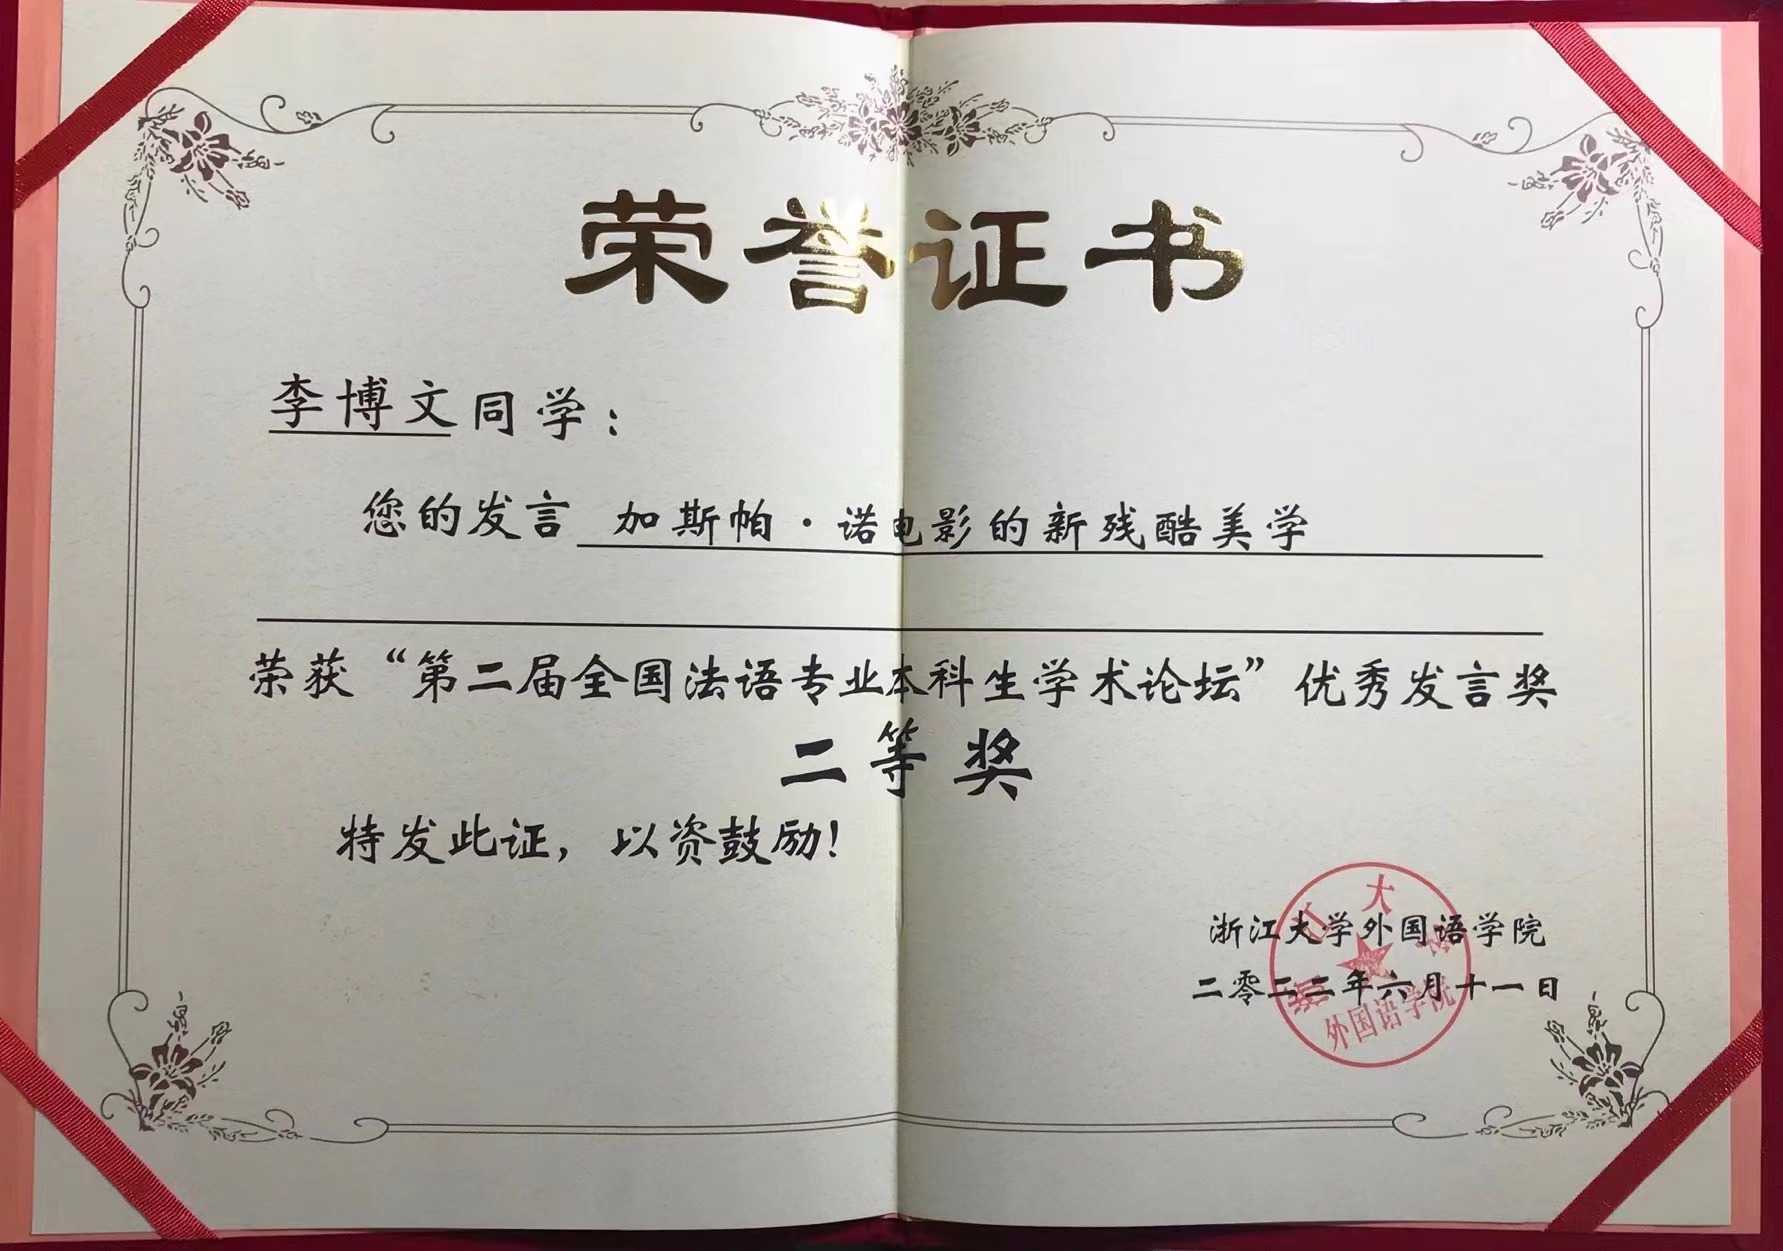 荣誉证书
李博文同学：
您的发言 加斯帕·诺电影的新残酷美学
荣获“第二届全国法语专业本科生学术论坛”优秀发言奖
二等奖
特发此证，以资鼓励！
浙江大学外国语学院
二零二二年六月十一日
浙江大学
外国语学院